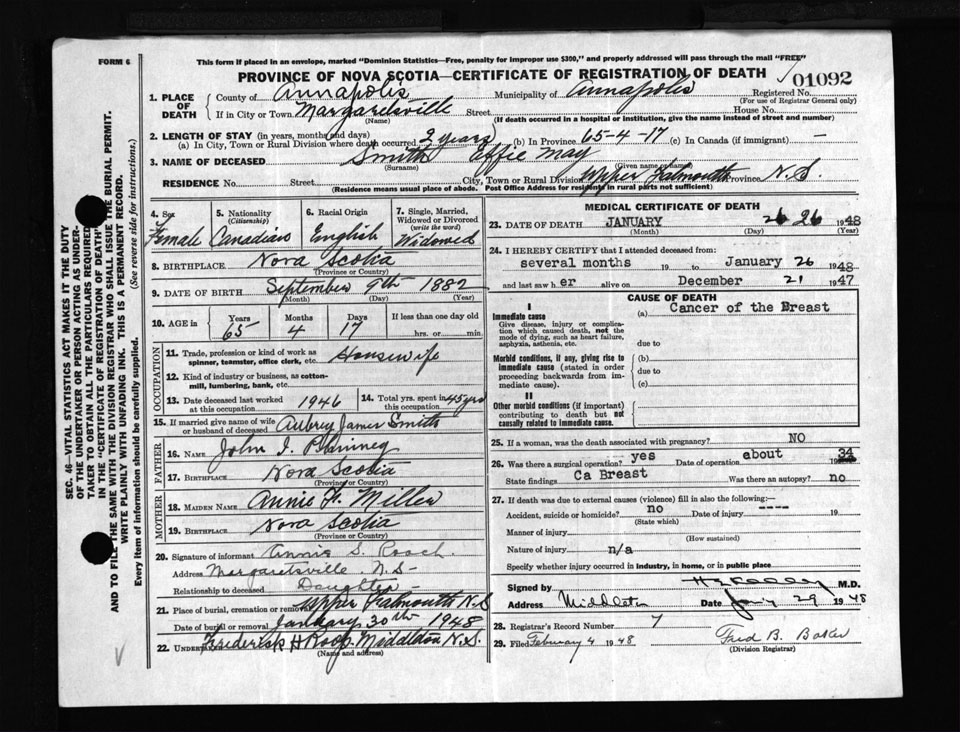 FORM 6
This form if placed in an envelope, marked "Dominion Statistics—Free, penalty for improper use $300," and properly addressed will pass through the mail "FREE"
PROVINCE OF NOVA SCOTIA—CERTIFICATE OF REGISTRATION OF DEATH
01092
1. PLACE OF DEATH
County of Annapolis Municipality of Annapolis Registered No.
(For use of Registrar General only)
If in City or Town Margaretsville Street House No.
(Name) (If death occurred in a hospital or institution, give the name instead of street and number)
2. LENGTH OF STAY (in years, months and days)
(a) In City, Town or Rural Division where death occurred 2 years (b) In Province 65-4-17 (c) In Canada (if immigrant) —
3. NAME OF DECEASED Smith Effie May
(Surname) (Given name or names)
RESIDENCE No. Street City, Town or Rural Division Upper Falmouth Province N.S.
(Residence means usual place of abode. Post Office Address for residents in rural parts not sufficient)
4. Sex Female
5. Nationality (Citizenship) Canadian
6. Racial Origin English
7. Single, Married, Widowed or Divorced (write the word) Widowed
8. BIRTHPLACE Nova Scotia
(Province or Country)
9. DATE OF BIRTH September 9th 1882
(Month) (Day) (Year)
10. AGE in Years 65 Months 4 Days 17 If less than one day old hrs. or min.
OCCUPATION
11. Trade, profession or kind of work as spinner, teamster, office clerk, etc. Housewife
12. Kind of industry or business, as cotton-mill, lumbering, bank, etc.
13. Date deceased last worked at this occupation 1946
14. Total yrs. spent in this occupation 45 yrs
15. If married give name of wife or husband of deceased Aubrey James Smith
FATHER
16. NAME John I. Phinney
17. BIRTHPLACE Nova Scotia
(Province or Country)
MOTHER
18. MAIDEN NAME Annie H. Miller
19. BIRTHPLACE Nova Scotia
(Province or Country)
20. Signature of informant Annie S. Roach.
Address Margaretsville N.S-
Relationship to deceased Daughter -
21. Place of burial, cremation or removal Upper Falmouth N.S
Date of burial or removal January 30th 1948
22. UNDERTAKER Frederick H Roop. Middleton N.S.
(Name and address)
MEDICAL CERTIFICATE OF DEATH
23. DATE OF DEATH JANUARY 26 26 1948
(Month) (Day) (Year)
24. I HEREBY CERTIFY that I attended deceased from:
several months 19 to January 26 1948
and last saw her alive on December 21 1947
CAUSE OF DEATH
I
Immediate cause
Give disease, injury or complication which caused death, not the mode of dying, such as heart failure, asphyxia, asthenia, etc.
(a) Cancer of the Breast
due to
Morbid conditions, if any, giving rise to immediate cause (stated in order proceeding backwards from immediate cause).
(b)
due to
(c)
II
Other morbid conditions (if important) contributing to death but not causally related to immediate cause.
25. If a woman, was the death associated with pregnancy? NO
26. Was there a surgical operation? yes Date of operation about 34
State findings Ca Breast Was there an autopsy? no
27. If death was due to external causes (violence) fill in also the following:—
Accident, suicide or homicide? no Date of injury ---- 19
(State which)
Manner of injury
(How sustained)
Nature of injury n/a
Specify whether injury occurred in industry, in home, or in public place
Signed by H E Kelley M.D.
Address Middleton Date Jan 29 1948
28. Registrar's Record Number 7
29. Filed February 4 1948 Fred B. Baker
(Division Registrar)
SEC. 46—VITAL STATISTICS ACT MAKES IT THE DUTY
OF THE UNDERTAKER OR PERSON ACTING AS UNDER-
TAKER TO OBTAIN ALL THE PARTICULARS REQUIRED
IN THE "CERTIFICATE OF REGISTRATION OF DEATH"
AND TO FILE THE SAME WITH THE DIVISION REGISTRAR WHO SHALL ISSUE THE BURIAL PERMIT.
WRITE PLAINLY WITH UNFADING INK. THIS IS A PERMANENT RECORD.
Every item of information should be carefully supplied. (See reverse side for instructions.)